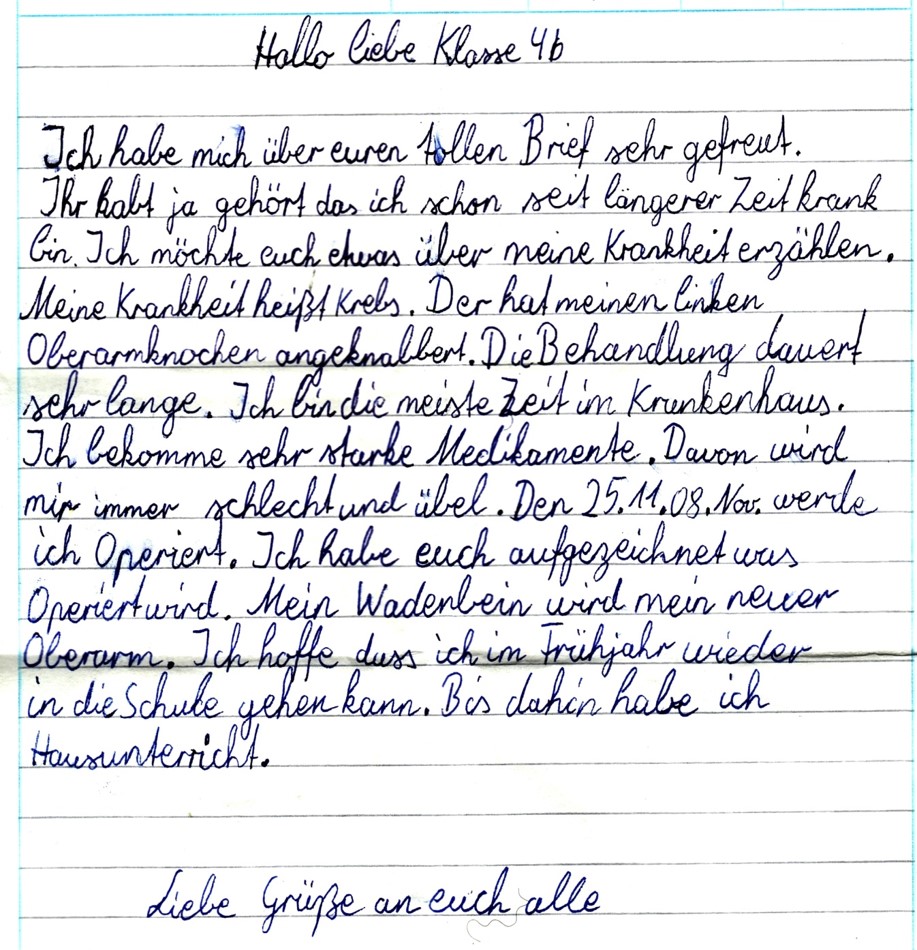 Hallo liebe Klasse 4b
Ich habe mich über euren tollen Brief sehr gefreut.
Ihr habt ja gehört das ich schon seit längerer Zeit krank
bin. Ich möchte euch etwas über meine Krankheit erzählen.
Meine Krankheit heißt Krebs. Der hat meinen linken
Oberarmknochen angeknabbert. Die Behandlung dauert
sehr lange. Ich bin die meiste Zeit im Krankenhaus.
Ich bekomme sehr starke Medikamente. Davon wird
mir immer schlecht und übel. Den 25.11.08. Nov. werde
ich Operiert. Ich habe euch aufgezeichnet was
Operiert wird. Mein Wadenbein wird mein neuer
Oberarm. Ich hoffe dass ich im Frühjahr wieder
in die Schule gehen kann. Bis dahin habe ich
Hausunterricht.
Liebe Grüße an euch alle